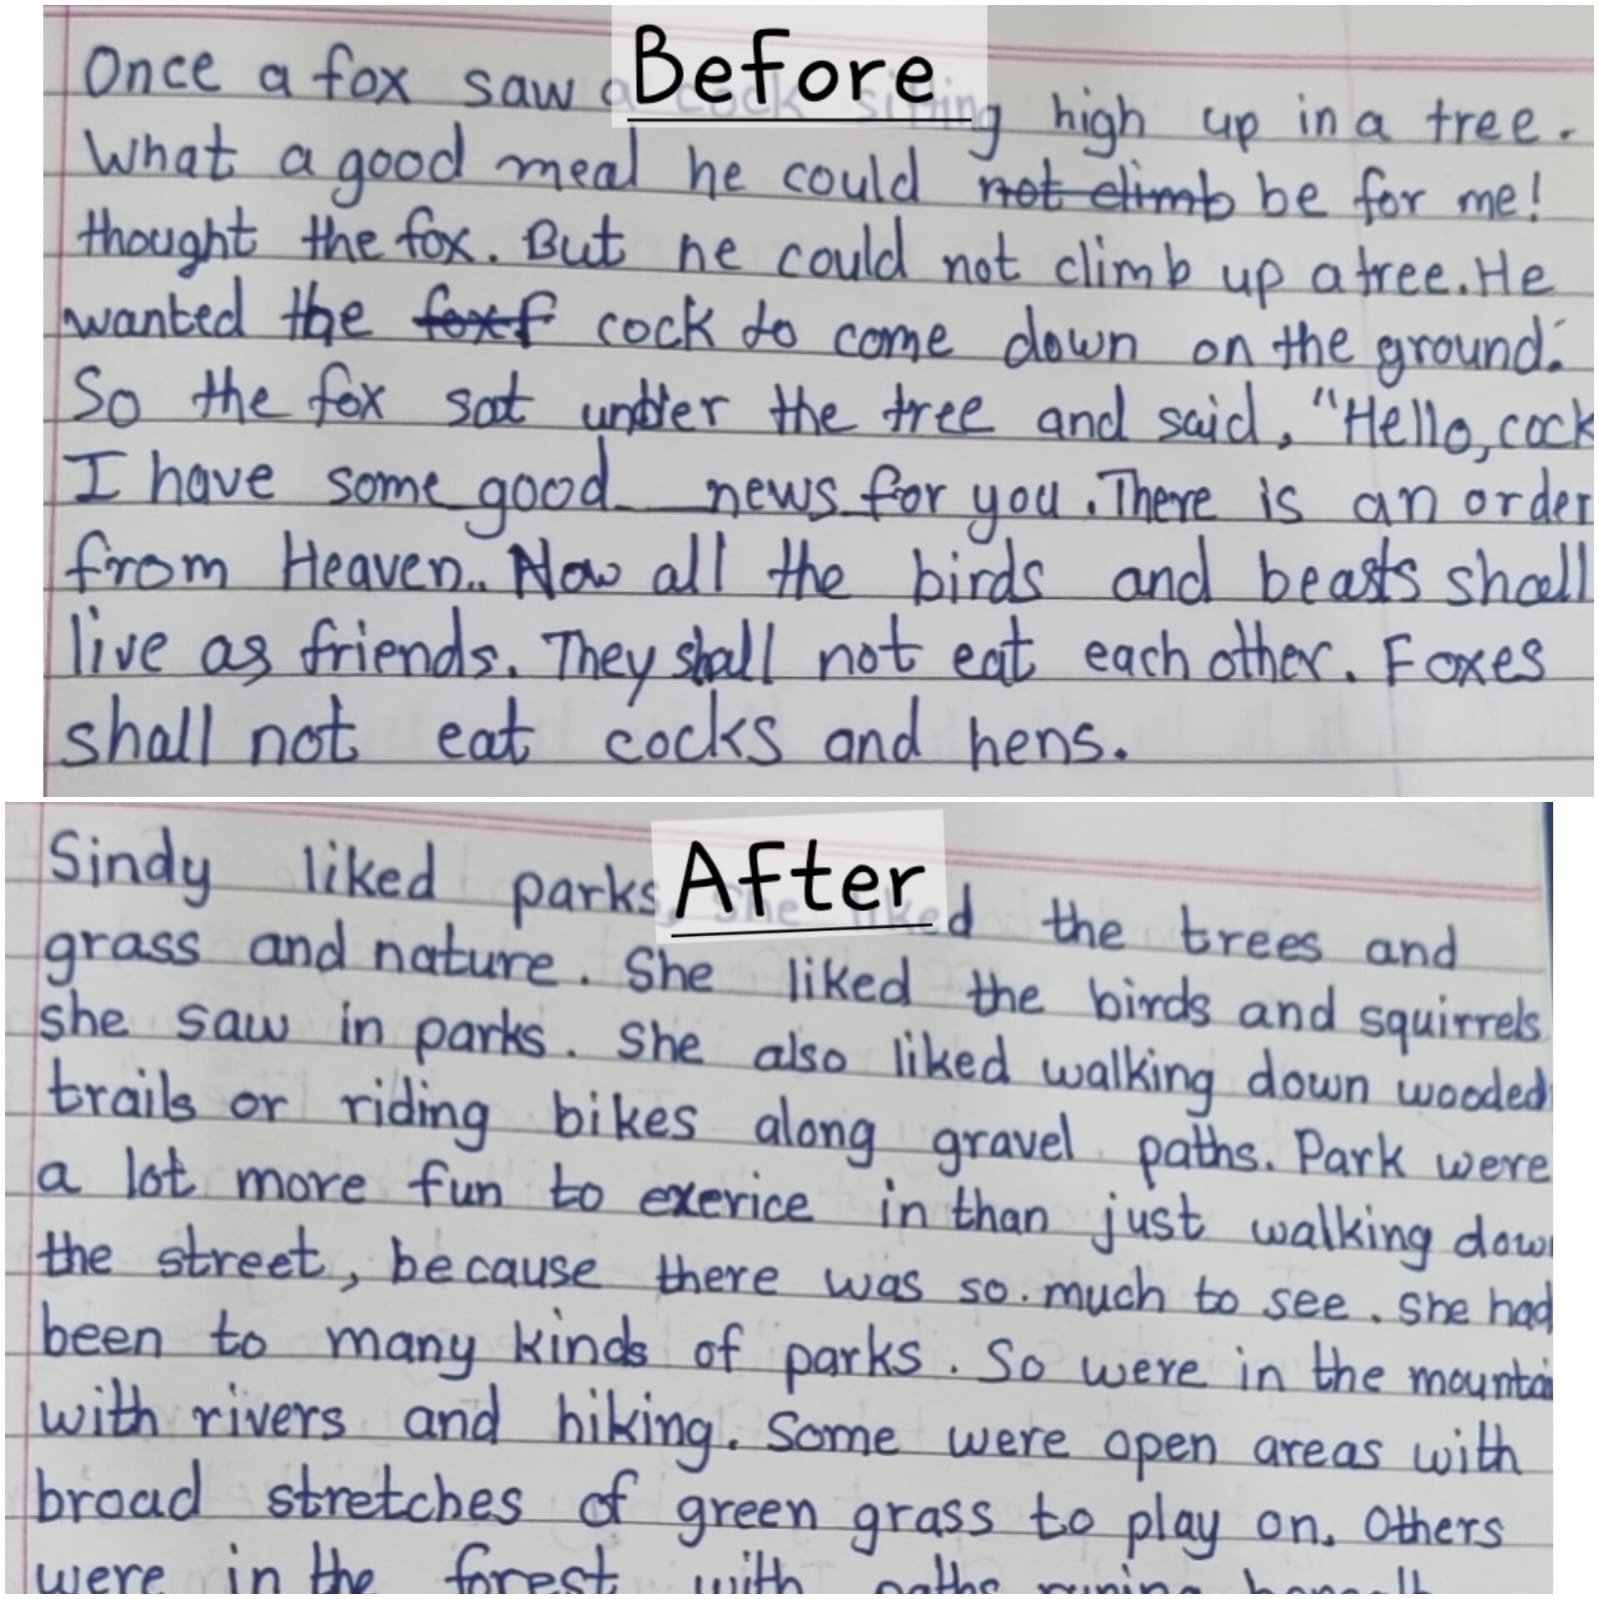 Before
Once a fox saw a cock sitting high up in a tree.
What a good meal he could not climb be for me!
thought the fox. But he could not climb up a tree. He
wanted the foxf cock to come down on the ground.
So the fox sat under the tree and said, "Hello, cock
I have some good news for you. There is an order
from Heaven.. Now all the birds and beasts shall
live as friends. They shall not eat each other. Foxes
shall not eat cocks and hens.
After
Sindy liked parks. She liked the trees and
grass and nature. She liked the birds and squirrels
she saw in parks. She also liked walking down wooded
trails or riding bikes along gravel paths. Park were
a lot more fun to exerice in than just walking dow
the street, because there was so much to see. She had
been to many kinds of parks. So were in the mountai
with rivers and hiking. Some were open areas with
broad stretches of green grass to play on. Others
were in the forest with paths runing